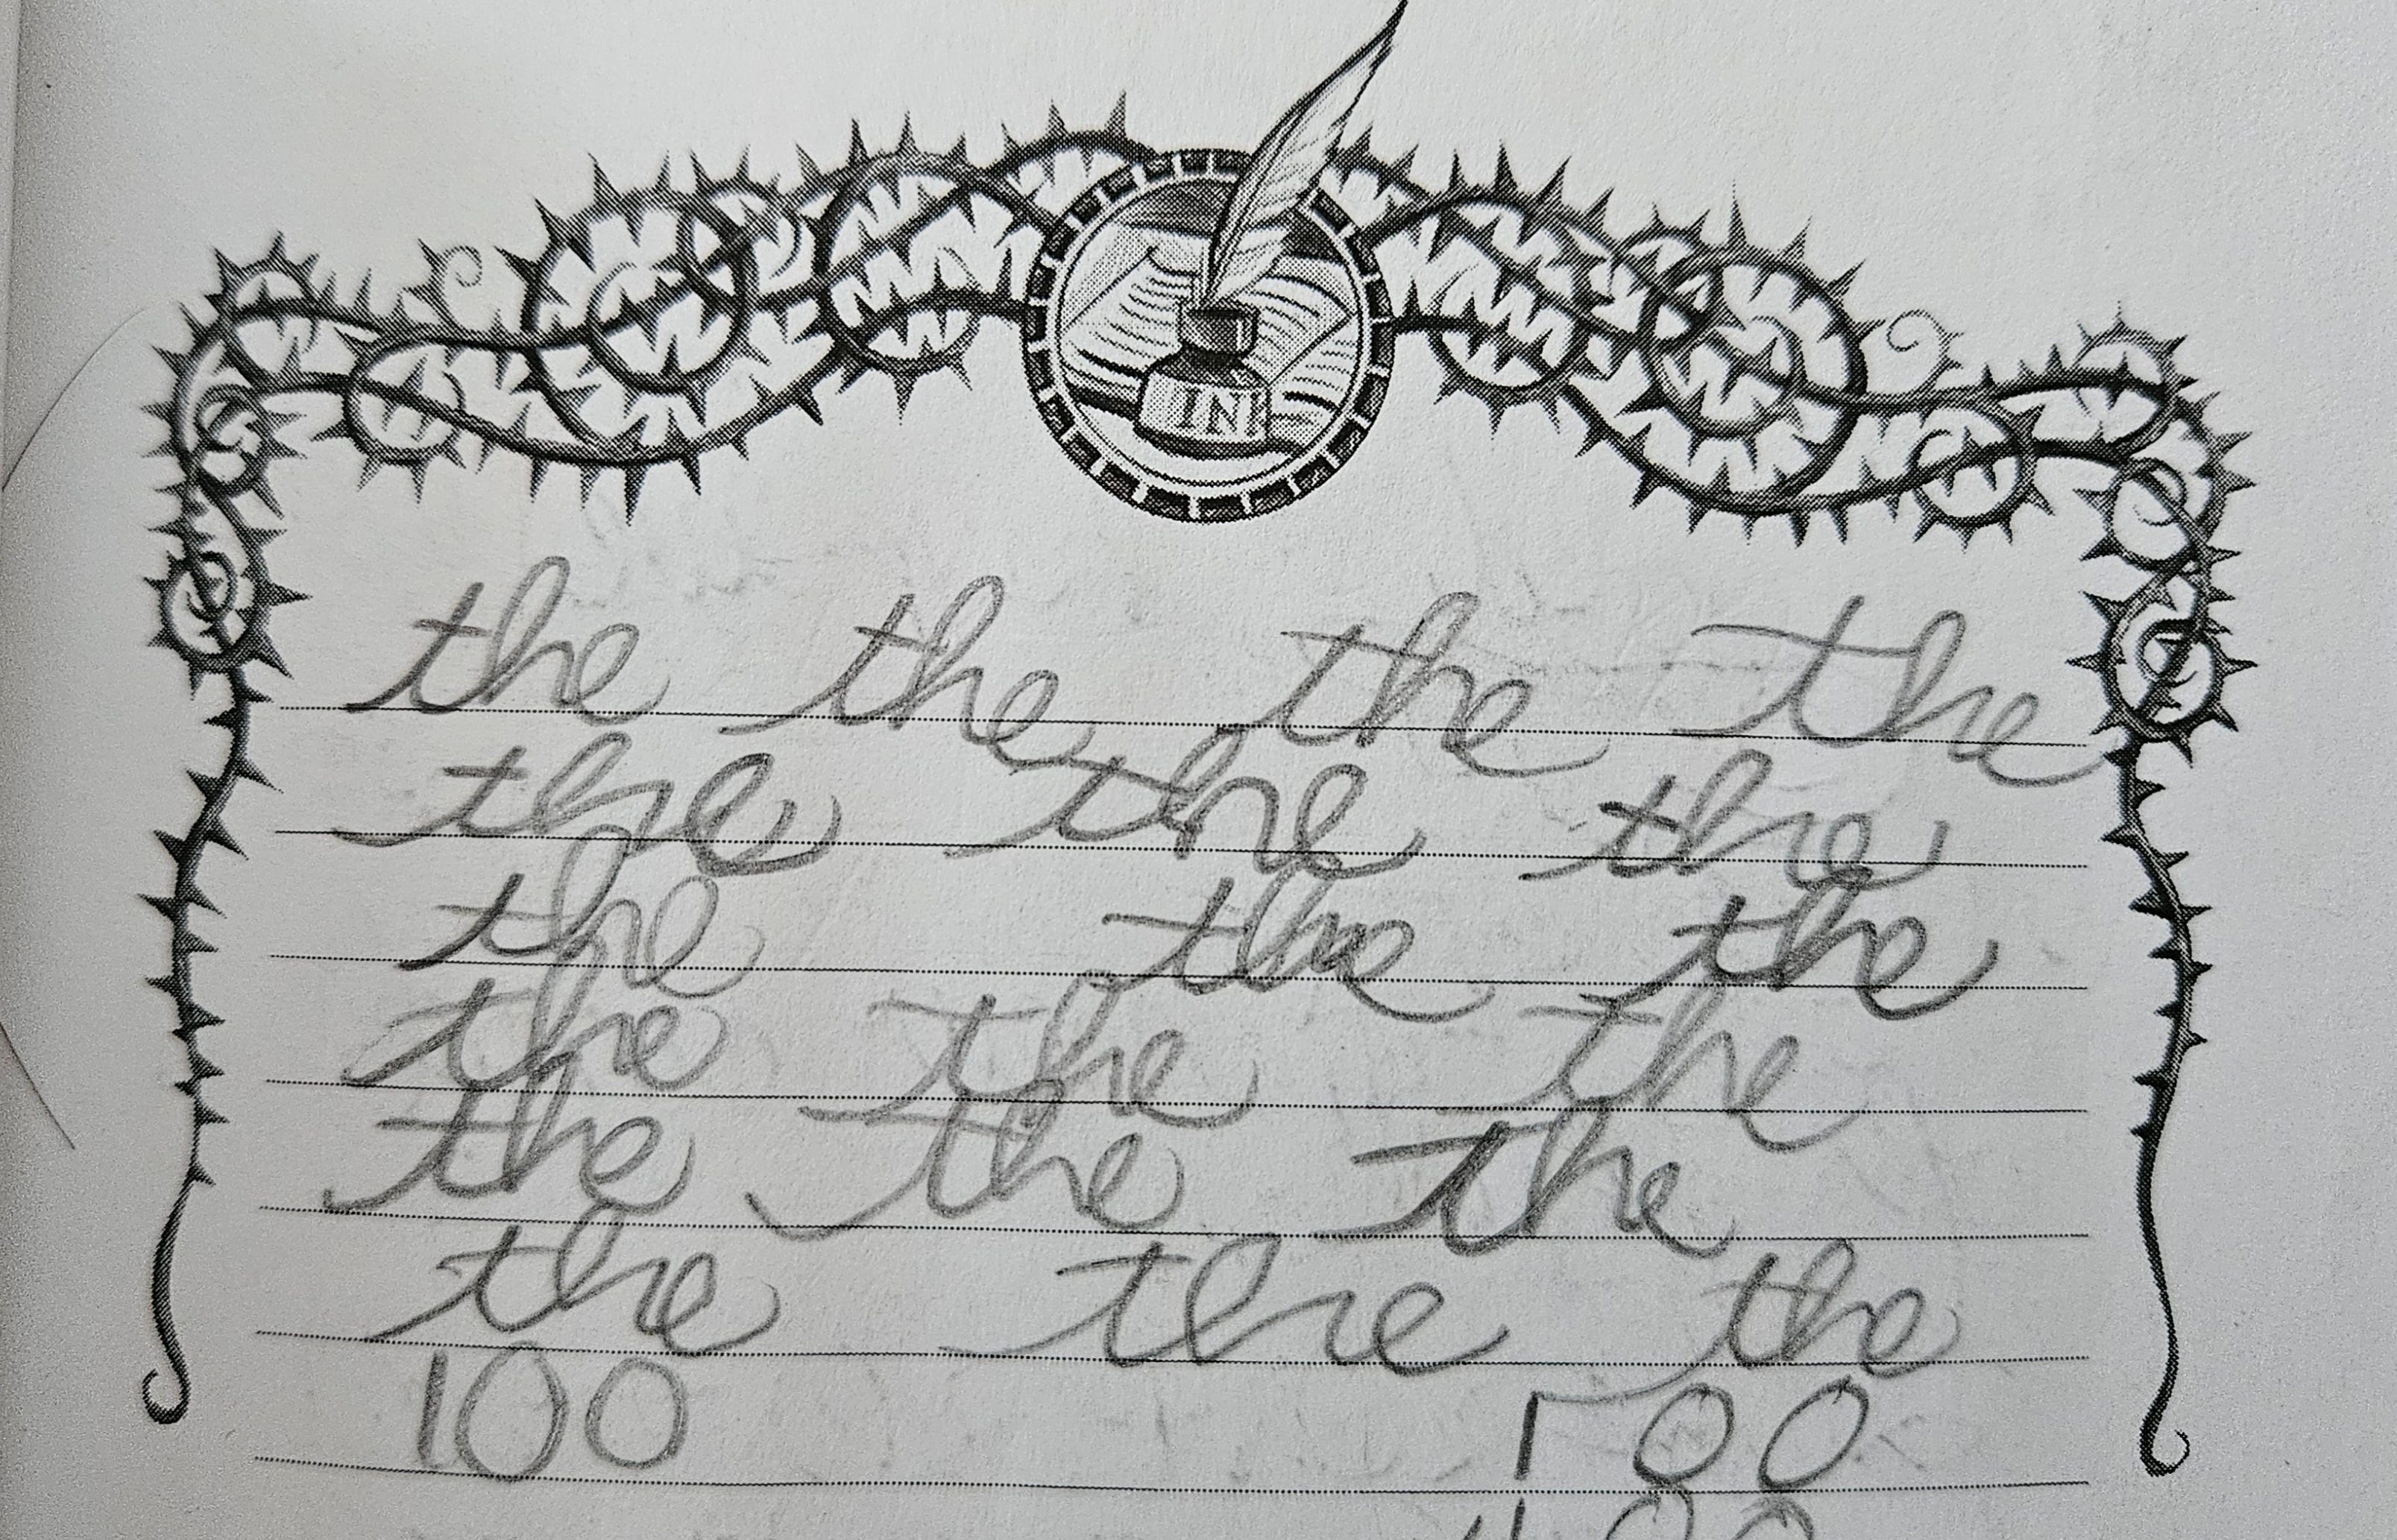 IN
the the the the
the the the
the the the
the the the
the the the
the the the
100 100